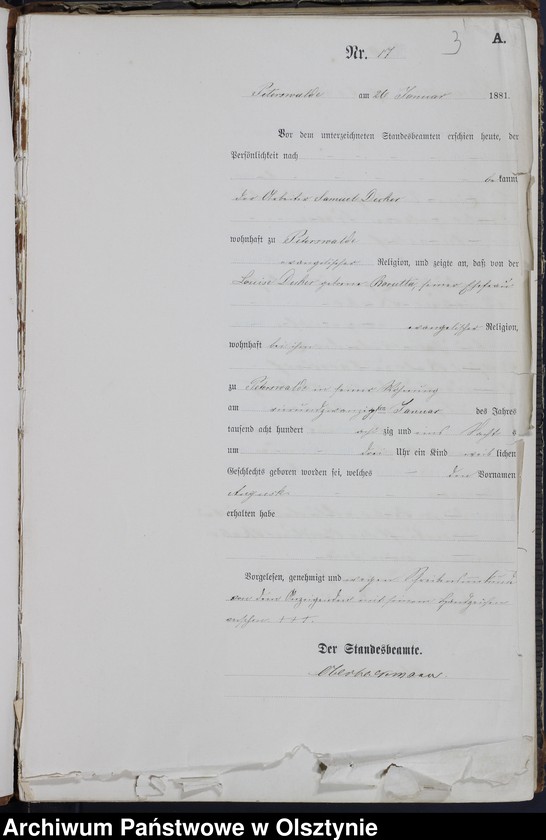 3
A.
Nr. 17
Peterswalde am 26 Januar 1881.
Vor dem unterzeichneten Standesbeamten erschien heute, der
Persönlichkeit nach
be kannt
der Arbeiter Samuel Decker
wohnhaft zu Peterswalde
evangelischer Religion, und zeigte an, daß von der
Decker geborne seiner Ehefrau
evangelischer Religion,
wohnhaft bei ihm
zu Peterswalde in seiner Wohnung
am ten Januar des Jahres
tausend acht hundert acht zig und eins Nachts
um drei Uhr ein Kind weib lichen
Geschlechts geboren worden sei, welches den Vornamen
erhalten habe
Vorgelesen, genehmigt und wegen
von dem Anzeigenden mit seinem Handzeichen
versehen + + +.
Der Standesbeamte.
Archiwum Państwowe w Olsztynie